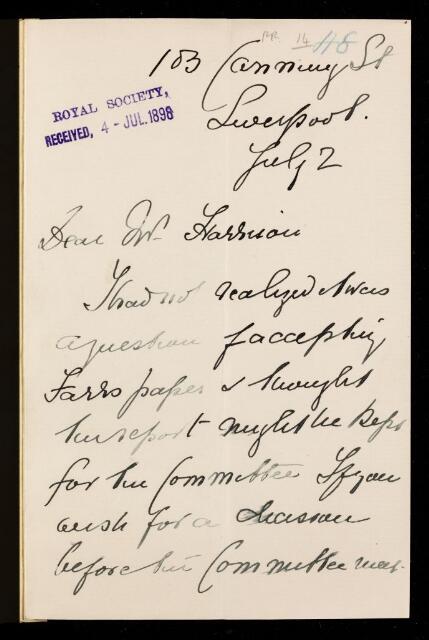 RR 14 118
103 Canning St
ROYAL SOCIETY,
RECEIVED, 4 - JUL. 1898
Liverpool.
July 2
Dear Mr Harrison
I had not realized it was
a question of accepting
Farrs paper & thought
the report might be kept
for the Committee If you
wish for a decision
before the Committee meet-